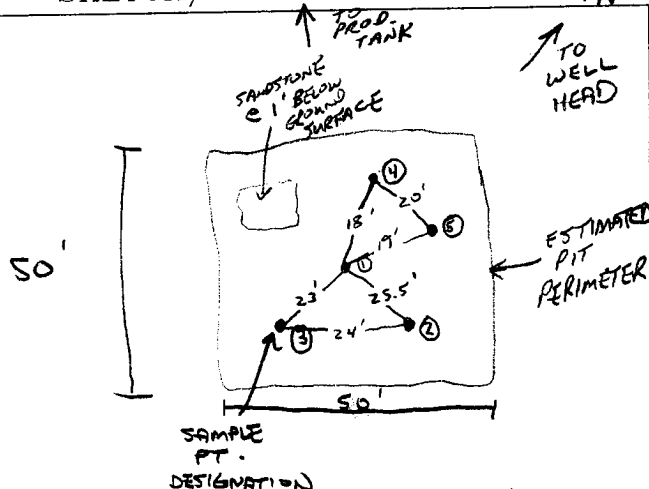 TO
PROD.
TANK
TO
WELL
HEAD
SANDSTONE
@ 1' BELOW
GROUND
SURFACE
50'
4
18'
20'
5
19'
1
23'
25.5'
3
24'
2
ESTIMATED
PIT
PERIMETER
50'
SAMPLE
PT.
DESIGNATION